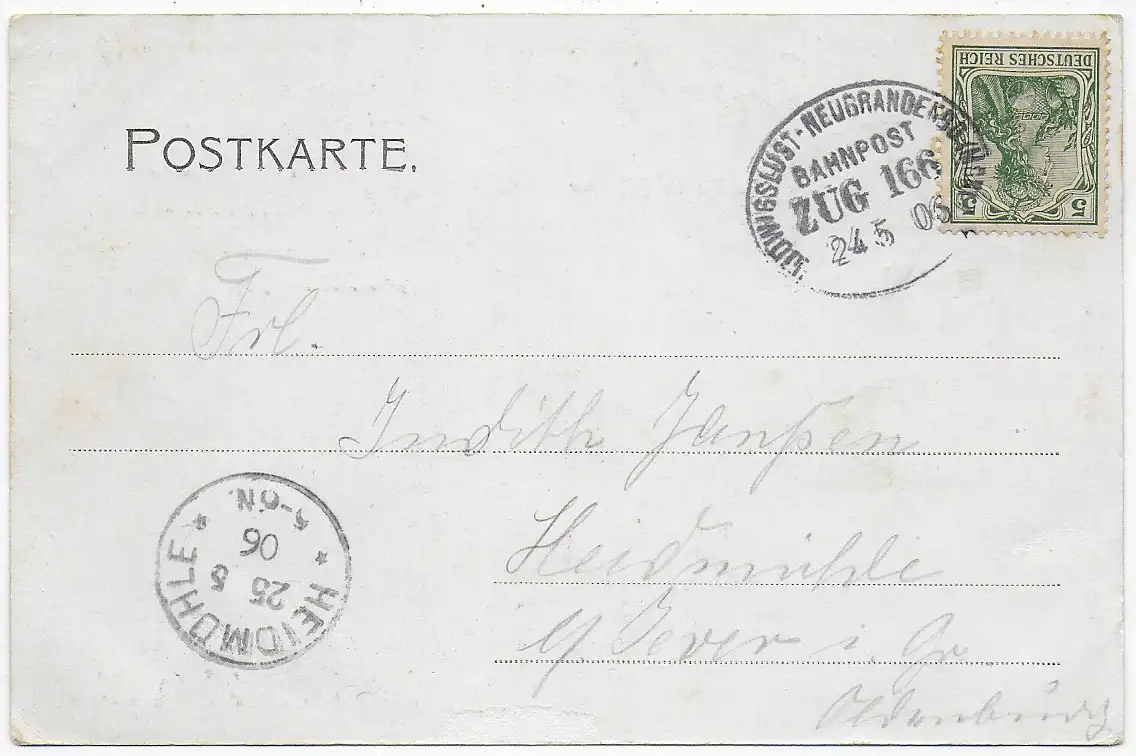 POSTKARTE.
LUDWIGSLUST-NEUBRANDENBURG
BAHNPOST
ZUG 166
24 5 06
DEUTSCHES REICH
5 5
Frl.
Judith Janßen
Heidmühle
b/ Jever i. Gr.
Oldenburg
HEIDMÜHLE
25 5
06
5-6N.